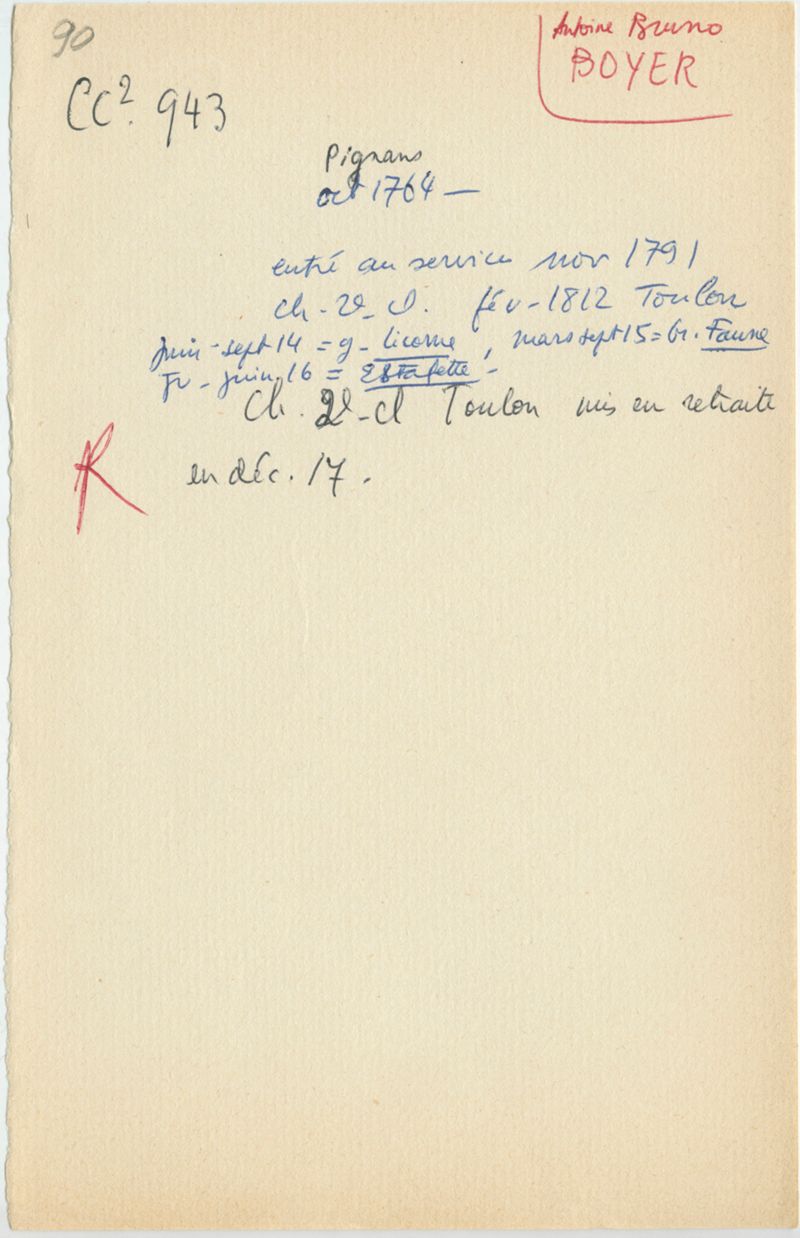 90
Antoine Bruno
BOYER
CC². 943
Pignans
oct 1764 —
entré au service nov 1791
ch. 2e cl. fév - 1812 Toulon
juin - sept 14 = g - Licorne, mars sept 15 = br. Faune
fv - juin 16 = Estafette -
Ch. 2e cl Toulon mis en retraite
R
en déc. 17.